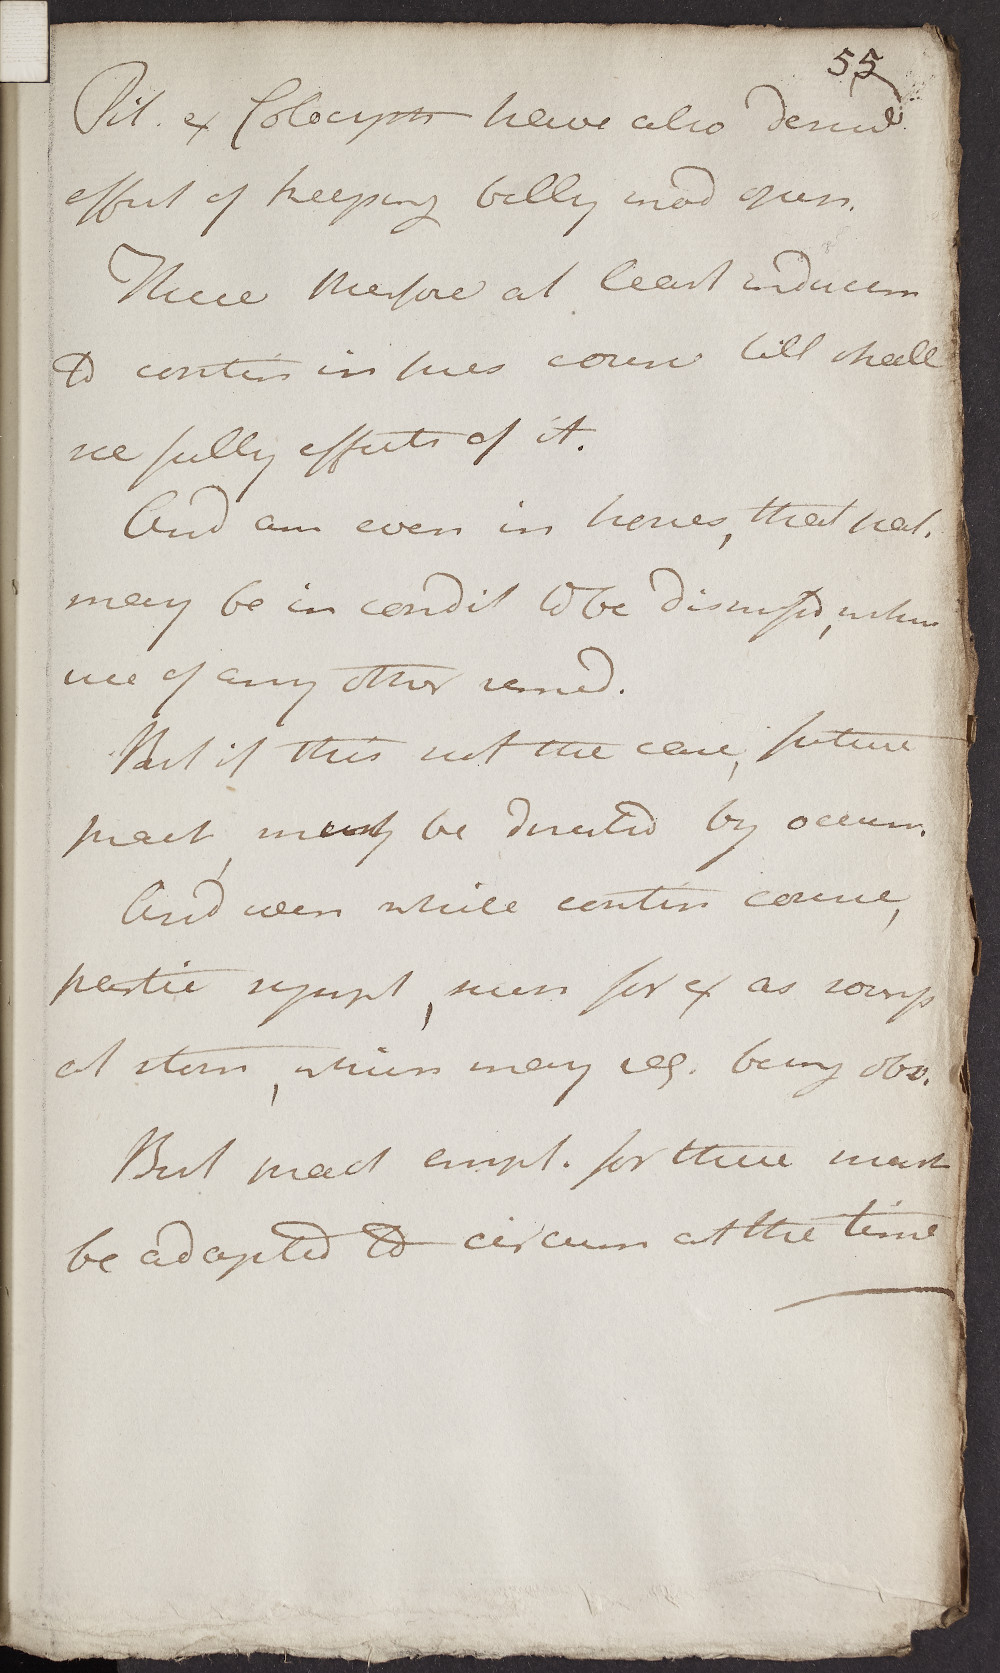 55
Pil. ex Colocynth have also desired
effect of keeping belly mod open.
These therefore at least inducem
to contin in pres course till shall
see fully effects of it.
And am even in hopes, that pat.
may be in condit to be dismissed, without
use of any other remed.
But if this not the case, future
pract, must be directed by occurr.
And even while contin course,
partic sympt, such for ex as
at stom, which may req. being obv.
But pract empl. for these must
be adapted to circum at the time